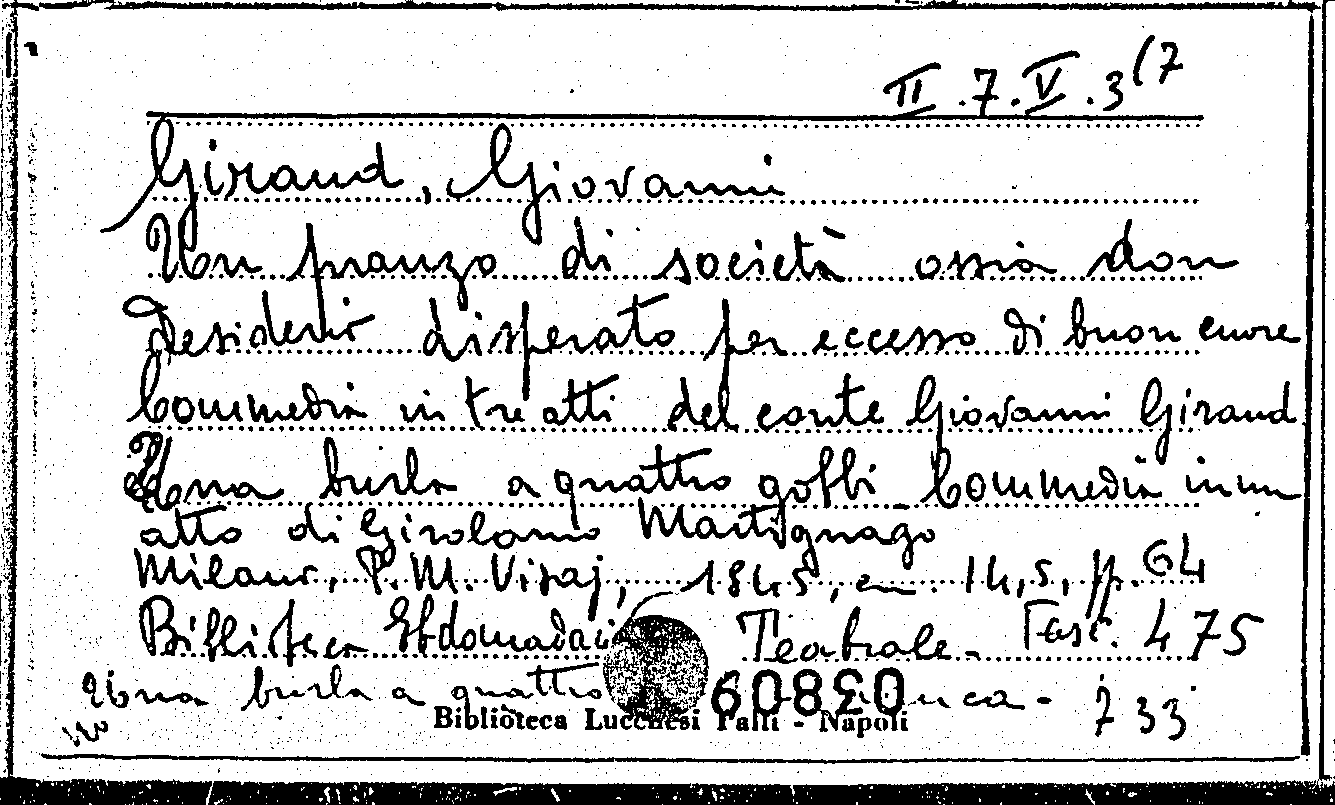 II.7.V.3(7
Giraud, Giovanni
Un pranzo di società ossia don
Desiderio disperato per eccesso di buon cuore
Commedia in tre atti del conte Giovanni Giraud
Una burla a quattro gobbi Commedia in un
atto di Girolamo Martignago
Milano, P. M. Visaj, 1845, cm. 14,5, pp. 64
Biblioteca Ebdomadaria Teatrale - Fasc. 475
Una burla a quattro 733
no
60830
Biblioteca Lucchesi Palli - Napoli